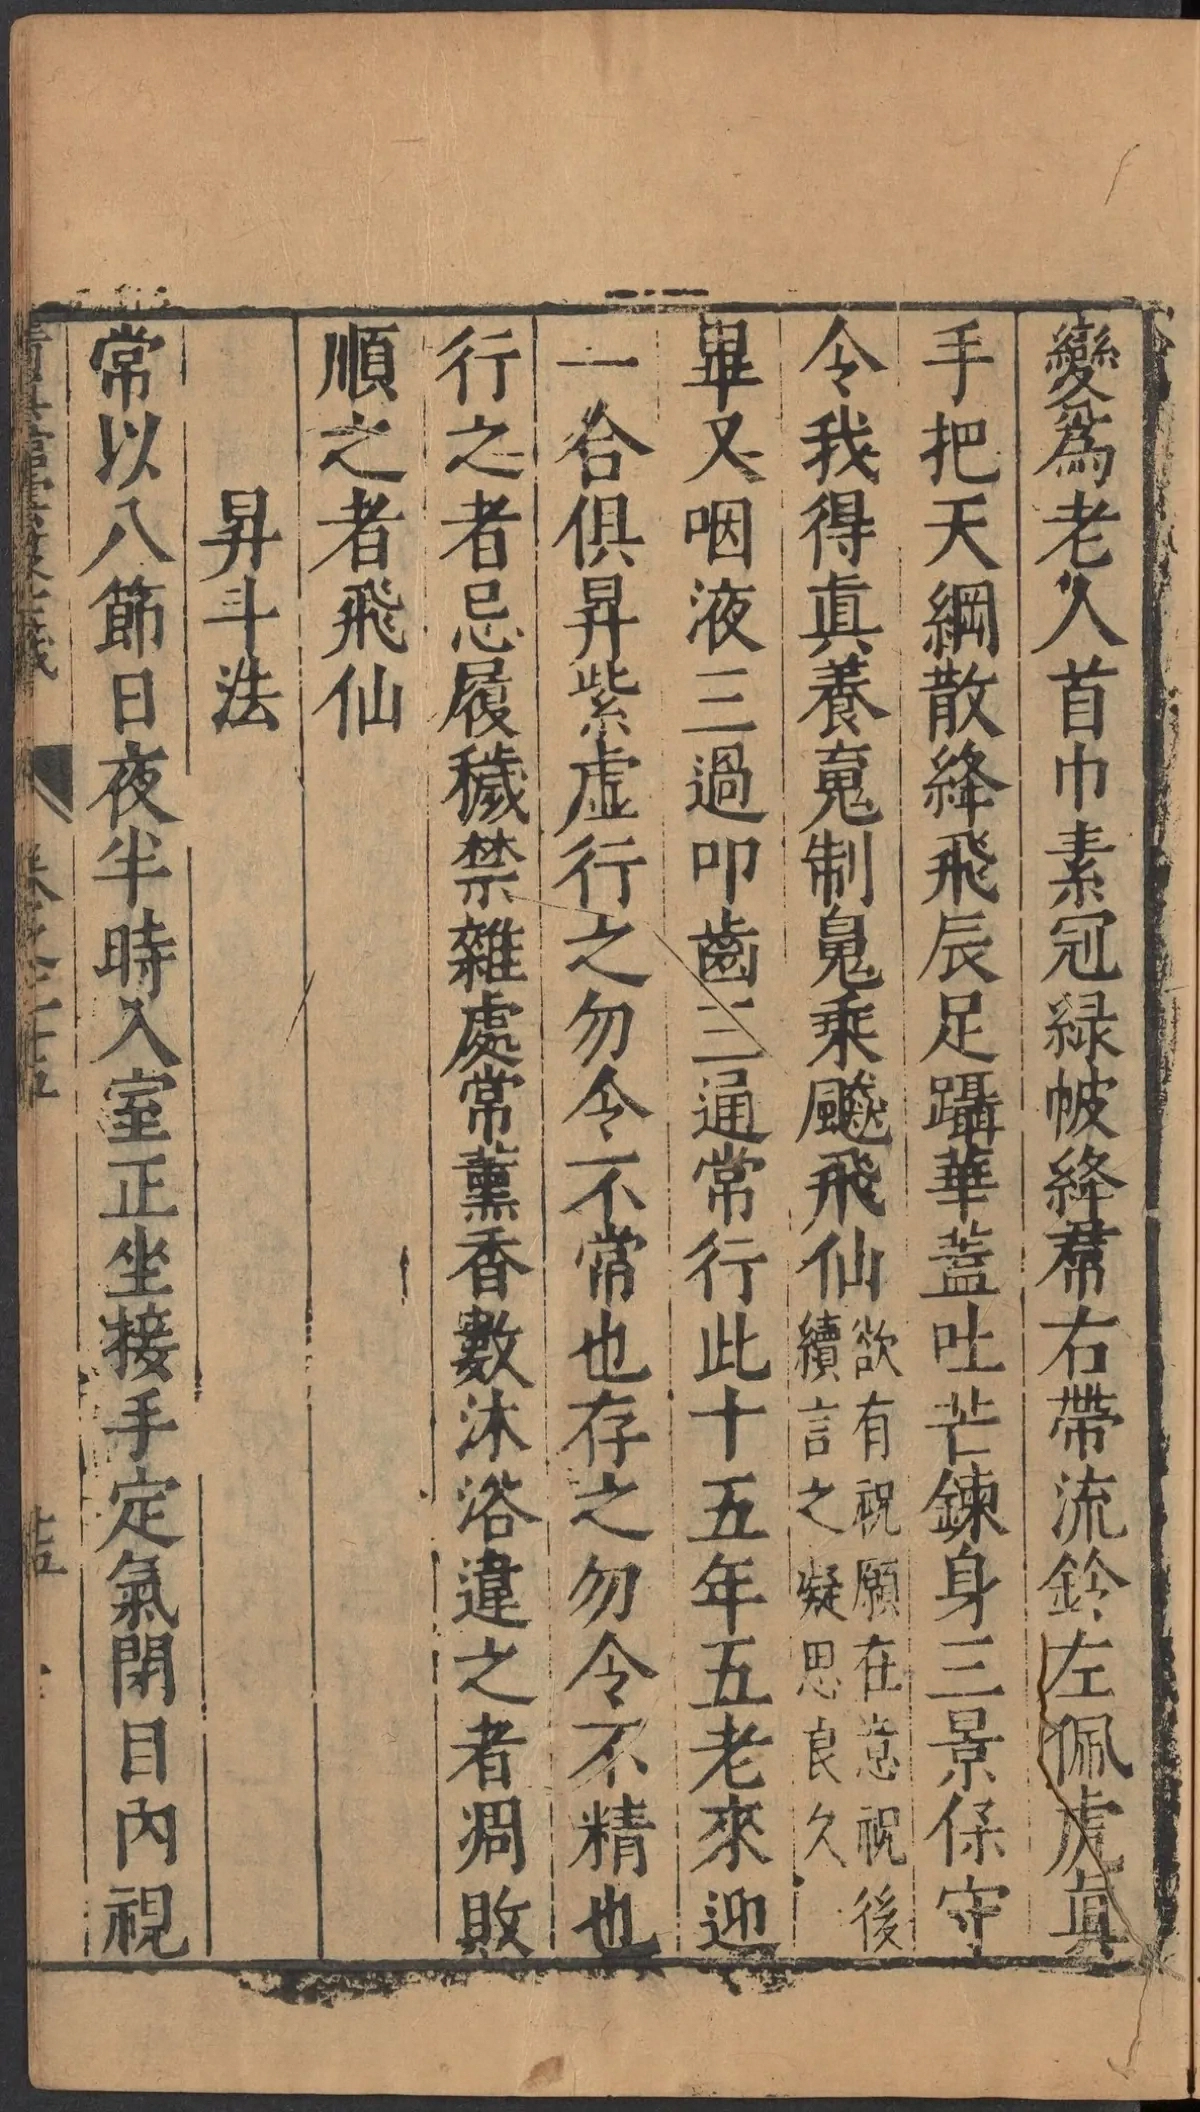 變爲老人首巾素冠緑帔絳帬右帶流鈴左佩虎真
手把天綱散絳飛辰足躡華蓋吐芒鍊身三景保守
令我得眞養䰟制䰟乘飈飛仙欲有祝願在意祝後續言之凝思良久
畢又咽液三過叩齒三通常行此十五年五老來迎
一合俱昇紫虛行之勿令不常也存之勿令不精也
行之者忌履穢禁雜處常薰香數沐浴違之者凋敗
順之者飛仙
昇斗法
常以八節日夜半時入室正坐接手定氣閉目內視